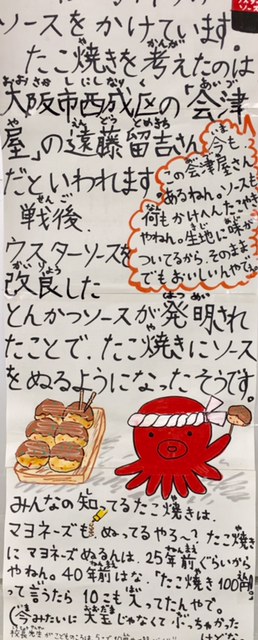 ウスター
ソース
ソースをかけています。
たこ焼きを考えたのは
大阪市西成区の「会津
屋」の遠藤留吉さん
だといわれます。
今も
この会津屋さん
あるねん。ソースも
何もかけへんたこやき
やねん。生地に味が
ついてるから、そのまま
でもおいしいんやで。
戦後、
ウスターソースを
改良した
とんかつソースが発明され
たことで、たこ焼きにソース
をぬるようになったそうです。
みんなの知ってるたこ焼きは、
マヨネーズもぬってるやろ〜?たこ焼き
にマヨネーズぬるんは、25年前ぐらいから
やねん。40年前はな、「たこ焼き100円
って言うたら10こも入ってたんやで。
(今みたいに大玉じゃなくてぶっちゃかった